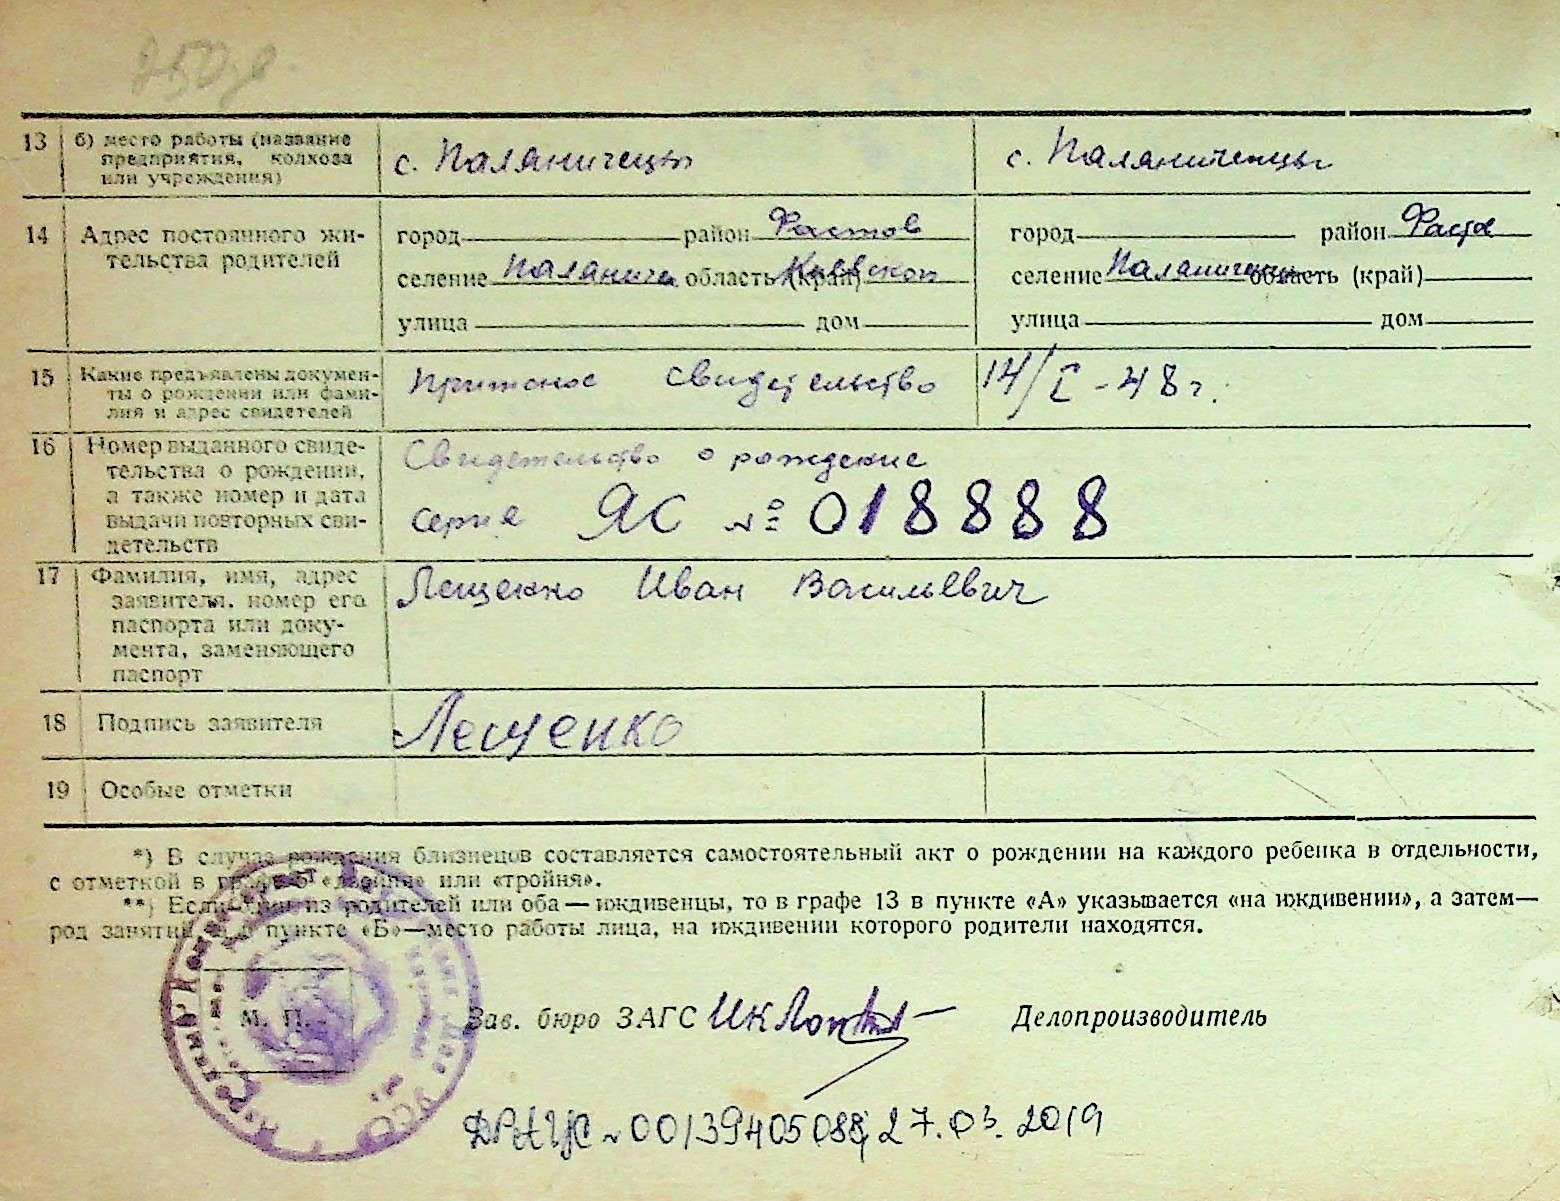 13 б) место работы (название
предприятия, колхоза
или учреждения)
с. Паляничецы
с. Паляниченцы
14 Адрес постоянного жи-
тельства родителей
город район Фастов
селение Паляниче область (край) Киевской
улица дом
город район Фаств
селение Паляничен область (край)
улица дом
15 Какие предъявлены докумен-
ты о рождении или фами-
лия и адрес свидетелей
свидетельство 14/I-48г.
16 Номер выданного свиде-
тельства о рождении,
а также номер и дата
выдачи повторных сви-
детельств
Свидетельство о рождение
серия ЯС № 018888
17 Фамилия, имя, адрес
заявителя, номер его
паспорта или доку-
мента, заменяющего
паспорт
Лещенко Иван Васильевич
18 Подпись заявителя
Лещенко
19 Особые отметки
*) В случае рождения близнецов составляется самостоятельный акт о рождении на каждого ребенка в отдельности,
с отметкой в графе 6 «двойня» или «тройня».
**) Если один из родителей или оба — иждивенцы, то в графе 13 в пункте «А» указывается «на иждивении», а затем—
род занятий, а в пункте «Б»—место работы лица, на иждивении которого родители находятся.
М. П.
Зав. бюро ЗАГС
Делопроизводитель
ДРАЦС № 00139405088, 27.03.2019